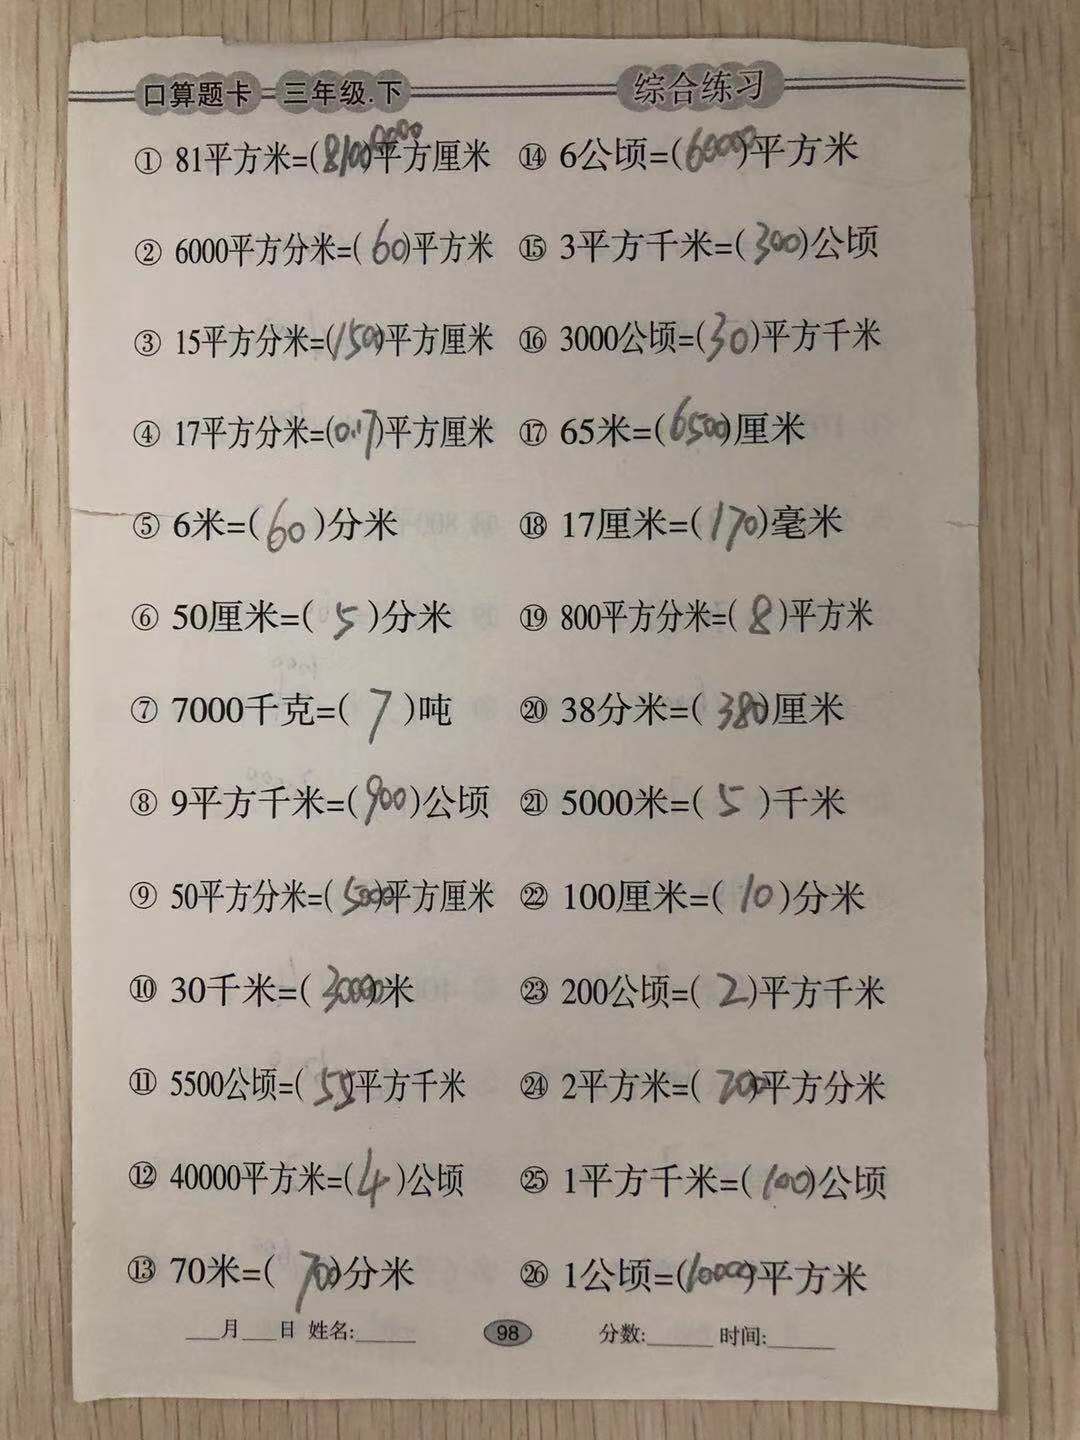 口算题卡 三年级.下 综合练习
① 81平方米=(8100000)平方厘米
② 6000平方分米=(60)平方米
③ 15平方分米=(1500)平方厘米
④ 17平方分米=(0.17)平方厘米
⑤ 6米=(60)分米
⑥ 50厘米=(5)分米
⑦ 7000千克=(7)吨
⑧ 9平方千米=(900)公顷
⑨ 50平方分米=(5000)平方厘米
⑩ 30千米=(30000)米
⑪ 5500公顷=(55)平方千米
⑫ 40000平方米=(4)公顷
⑬ 70米=(700)分米
⑭ 6公顷=(60000)平方米
⑮ 3平方千米=(300)公顷
⑯ 3000公顷=(30)平方千米
⑰ 65米=(6500)厘米
⑱ 17厘米=(170)毫米
⑲ 800平方分米=(8)平方米
⑳ 38分米=(380)厘米
㉑ 5000米=(5)千米
㉒ 100厘米=(10)分米
㉓ 200公顷=(2)平方千米
㉔ 2平方米=(200)平方分米
㉕ 1平方千米=(100)公顷
㉖ 1公顷=(10000)平方米
___月___日 姓名:______ 98 分数:______ 时间:______